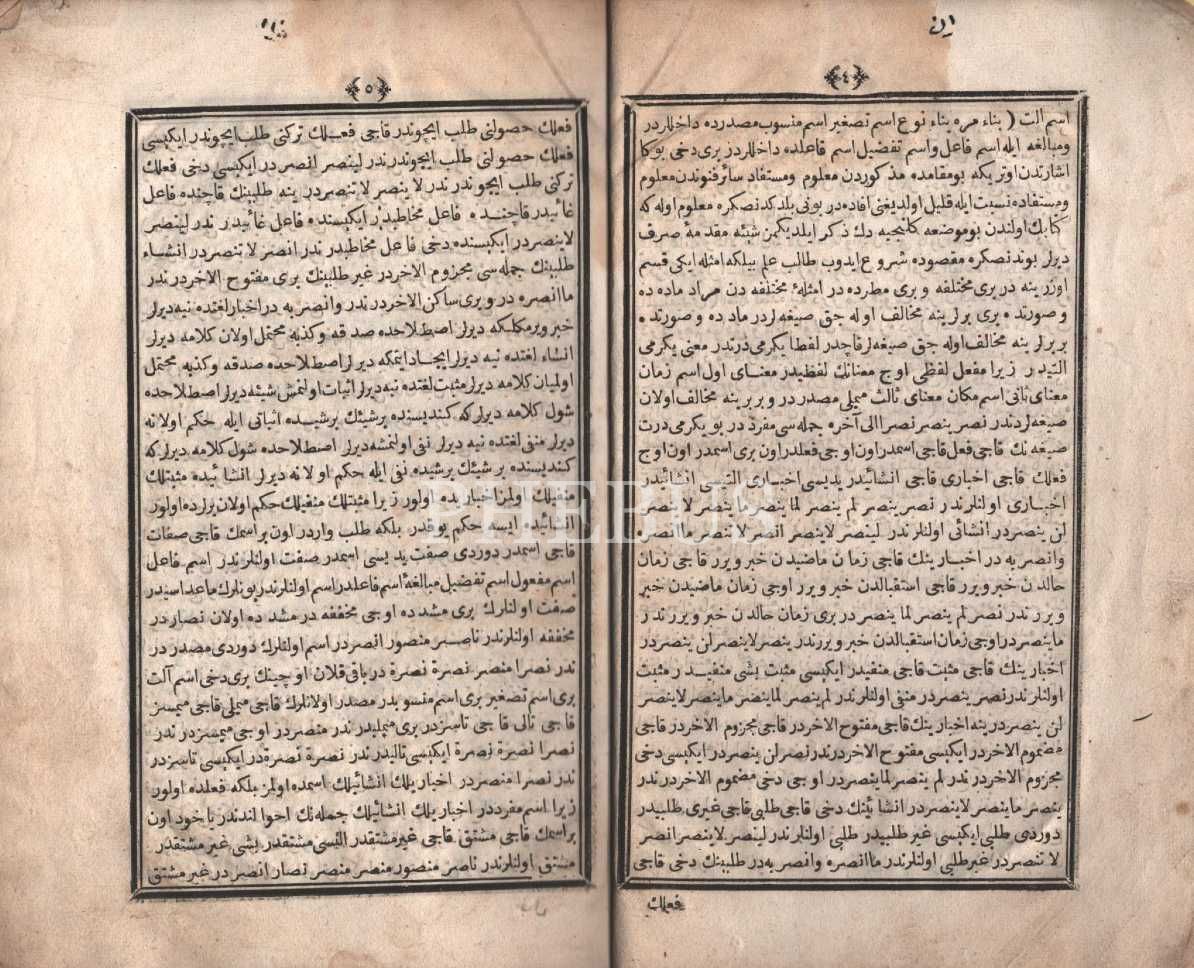 ٤
اسم الت ( بناء مره بناء نوع اسم تصغير اسم منسوب مصدرده داخللردر
ومبالغه ايله اسم فاعل واسم تفضيل اسم فاعلده داخللردر برى دخى بوكا
اشارتدن اوتريكه بومقامده مذكوردن معلوم ومستفاد سائر فنوندن معلوم
ومستفاده نسبت ايله قليل اولديغنى افاده در بونى بلدكدنصكره معلوم اوله كه
كتابك اولندن بوموضعه كلنجيه دك ذكر ايلديكمز شيئه مقدمۀ صرف
ديرلر بوندنصكره مقصوده شروع ايدوب طالب علم بيلكه امثله ايكى قسم
اوزرينه در برى مختلفه و برى مطرده در امثلۀ مختلفه دن مراد ماده ده
وصورتده برى برلرينه مخالف اوله جق صيغه لردر ماده ده وصورتده
بربرلرينه مخالف اوله جق صيغه لر قاچدر لفظا يكرمى درتدر معنى يكرمى
التيدر زيرا مفعل لفظى اوج معنانك لفظيدر معناى اول اسم زمان
معناى ثانى اسم مكان معناى ثالث ميملى مصدردر وبربرينه مخالف اولان
صيغه لردندر نصر ينصر نصرا الى آخره جمله سى مفرددر بو يكرمى درت
صيغه نك قاچى فعل قاچى اسمدر اون اوچى فعلدر اون برى اسمدر اون اوج
فعلك قاچى اخبارى قاچى انشائيدر يديسى اخبارى التيسى انشائيدر
اخبارى اولنلرندر نصر ينصر لم ينصر لما ينصر ما ينصر لا ينصر
لن ينصردر انشائى اولنلرندر لينصر لا ينصر انصر لا تنصر ما انصر
وانصر به در اخبارينك قاچى زمان ماضيدن خبر ويرر قاچى زمان
حالدن خبر ويرر قاچى استقبالدن خبر ويرر اوچى زمان ماضيدن خبر
ويرر ندر نصر لم ينصر لما ينصردر برى زمان حالدن خبر ويرر ندر
ما ينصردر اوچى زمان استقبالدن خبر ويررندر ينصر لا ينصر لن ينصردر
اخبارينك قاچى مثبت قاچى منفيدر ايكيسى مثبت بشى منفيدر مثبت
اولنلر ندر نصر ينصردر منفى اولنلر ندر لم ينصر لما ينصر ما ينصر لا ينصر
لن ينصردر ينه اخبارينك قاچى مفتوح الاخردر قاچى مجزوم الاخردر قاچى
مضموم الاخردر ايكيسى مفتوح الاخردر ندر نصر لن ينصردر ايكيسى دخى
مجزوم الاخردر ندر لم ينصر لما ينصردر اوچى دخى مضموم الاخردر ندر
ينصر ما ينصر لا ينصردر انشائينك دخى قاچى طلبى قاچى غيرى طلبيدر
دوردى طلبى ايكيسى غير طلبيدر طلبى اولنلرندر لينصر لا ينصر انصر
لا تنصردر غير طلبى اولنلرندر ما انصره وانصر به در طلبينك دخى قاچى
فعلك
٥
فعلك حصولنى طلب ايچوندر قاچى فعلك تركنى طلب ايچوندر ايكيسى
فعلك حصولنى طلب ايچوندر ندر لينصر انصردر ايكيسى دخى فعلك
تركنى طلب ايچوندر ندر لا ينصر لا تنصردر ينه طلبينك قاچنده فاعل
غائبدر قاچنده فاعل مخاطبدر ايكيسنده فاعل غائبدر ندر لينصر
لا ينصردر ايكيسنده دخى فاعل مخاطبدر ندر انصر لا تنصردر انشاء
طلبينك جمله سى مجزوم الاخردر غير طلبينك برى مفتوح الاخردر ندر
ما انصره در وبرى ساكن الاخردر ندر وانصر به در اخبار لغتده نيه ديرلر
خبر ويرمكلكه ديرلر اصطلاحده صدقه وكذبه محتمل اولان كلامه ديرلر
انشاء لغتده نيه ديرلر ايجاد ايتمكه ديرلر اصطلاحده صدقه وكذبه محتمل
اولميان كلامه ديرلر مثبت لغتده نيه ديرلر اثبات اولنمش شيئه ديرلر اصطلاحده
شول كلامه ديرلر كه كنديسنده برشيئك برشيده اثباتى ايله حكم اولانه
ديرلر منفى لغتده نيه ديرلر نفى اولنمشه ديرلر اصطلاحده شول كلامه ديرلر كه
كنديسنده برشيئك برشيده نفى ايله حكم اولانه ديرلر انشائيده مثبتلك
منفيلك اولمز اخباريده اولور زيرا مثبتلك منفيلك حكم اولان يرلرده اولور
انشائيده ايسه حكم يوقدر بلكه طلب واردر اون بر اسمك قاچى صفات
قاچى اسمدر دوردى صفت يديسى اسمدر صفت اولنلرندر اسم فاعل
اسم مفعول اسم تفضيل مبالغۀ اسم فاعلدر اسم اولنلرندر بونلرك ماعداسيدر
صفت اولنلرك برى مشدده اوچى مخففه در مشدده اولان نصاردر
مخففه اولنلرندر ناصر منصور انصردر اسم اولنلرك دوردى مصدردر
ندر نصرا منصر نصرة نصرة در باقى قلان اوچينك برى دخى اسم آلت
برى اسم تصغير برى اسم منسوبدر مصدر اولانلرك قاچى ميملى قاچى ميمسز
قاچى تالى قاچى تاسزدر برى ميمليدر ندر منصردر اوچى ميمسزدر ندر
نصرا نصرة نصرة ايكيسى تاليدر ندر نصرة نصرة در ايكيسى تاسزدر
ندر نصرا منصردر اخباريلك انشائيلك اسمده اولمز بلكه فعلده اولور
زيرا اسم مفرددر اخباريلك انشائيلك جمله نك احوالندندر يا خود اون
بر اسمك قاچى مشتق قاچى غير مشتقدر التيسى مشتقدر بشى غير مشتقدر
مشتق اولنلرندر ناصر منصور منصر منصر نصار انصردر غير مشتق
PHEBUS